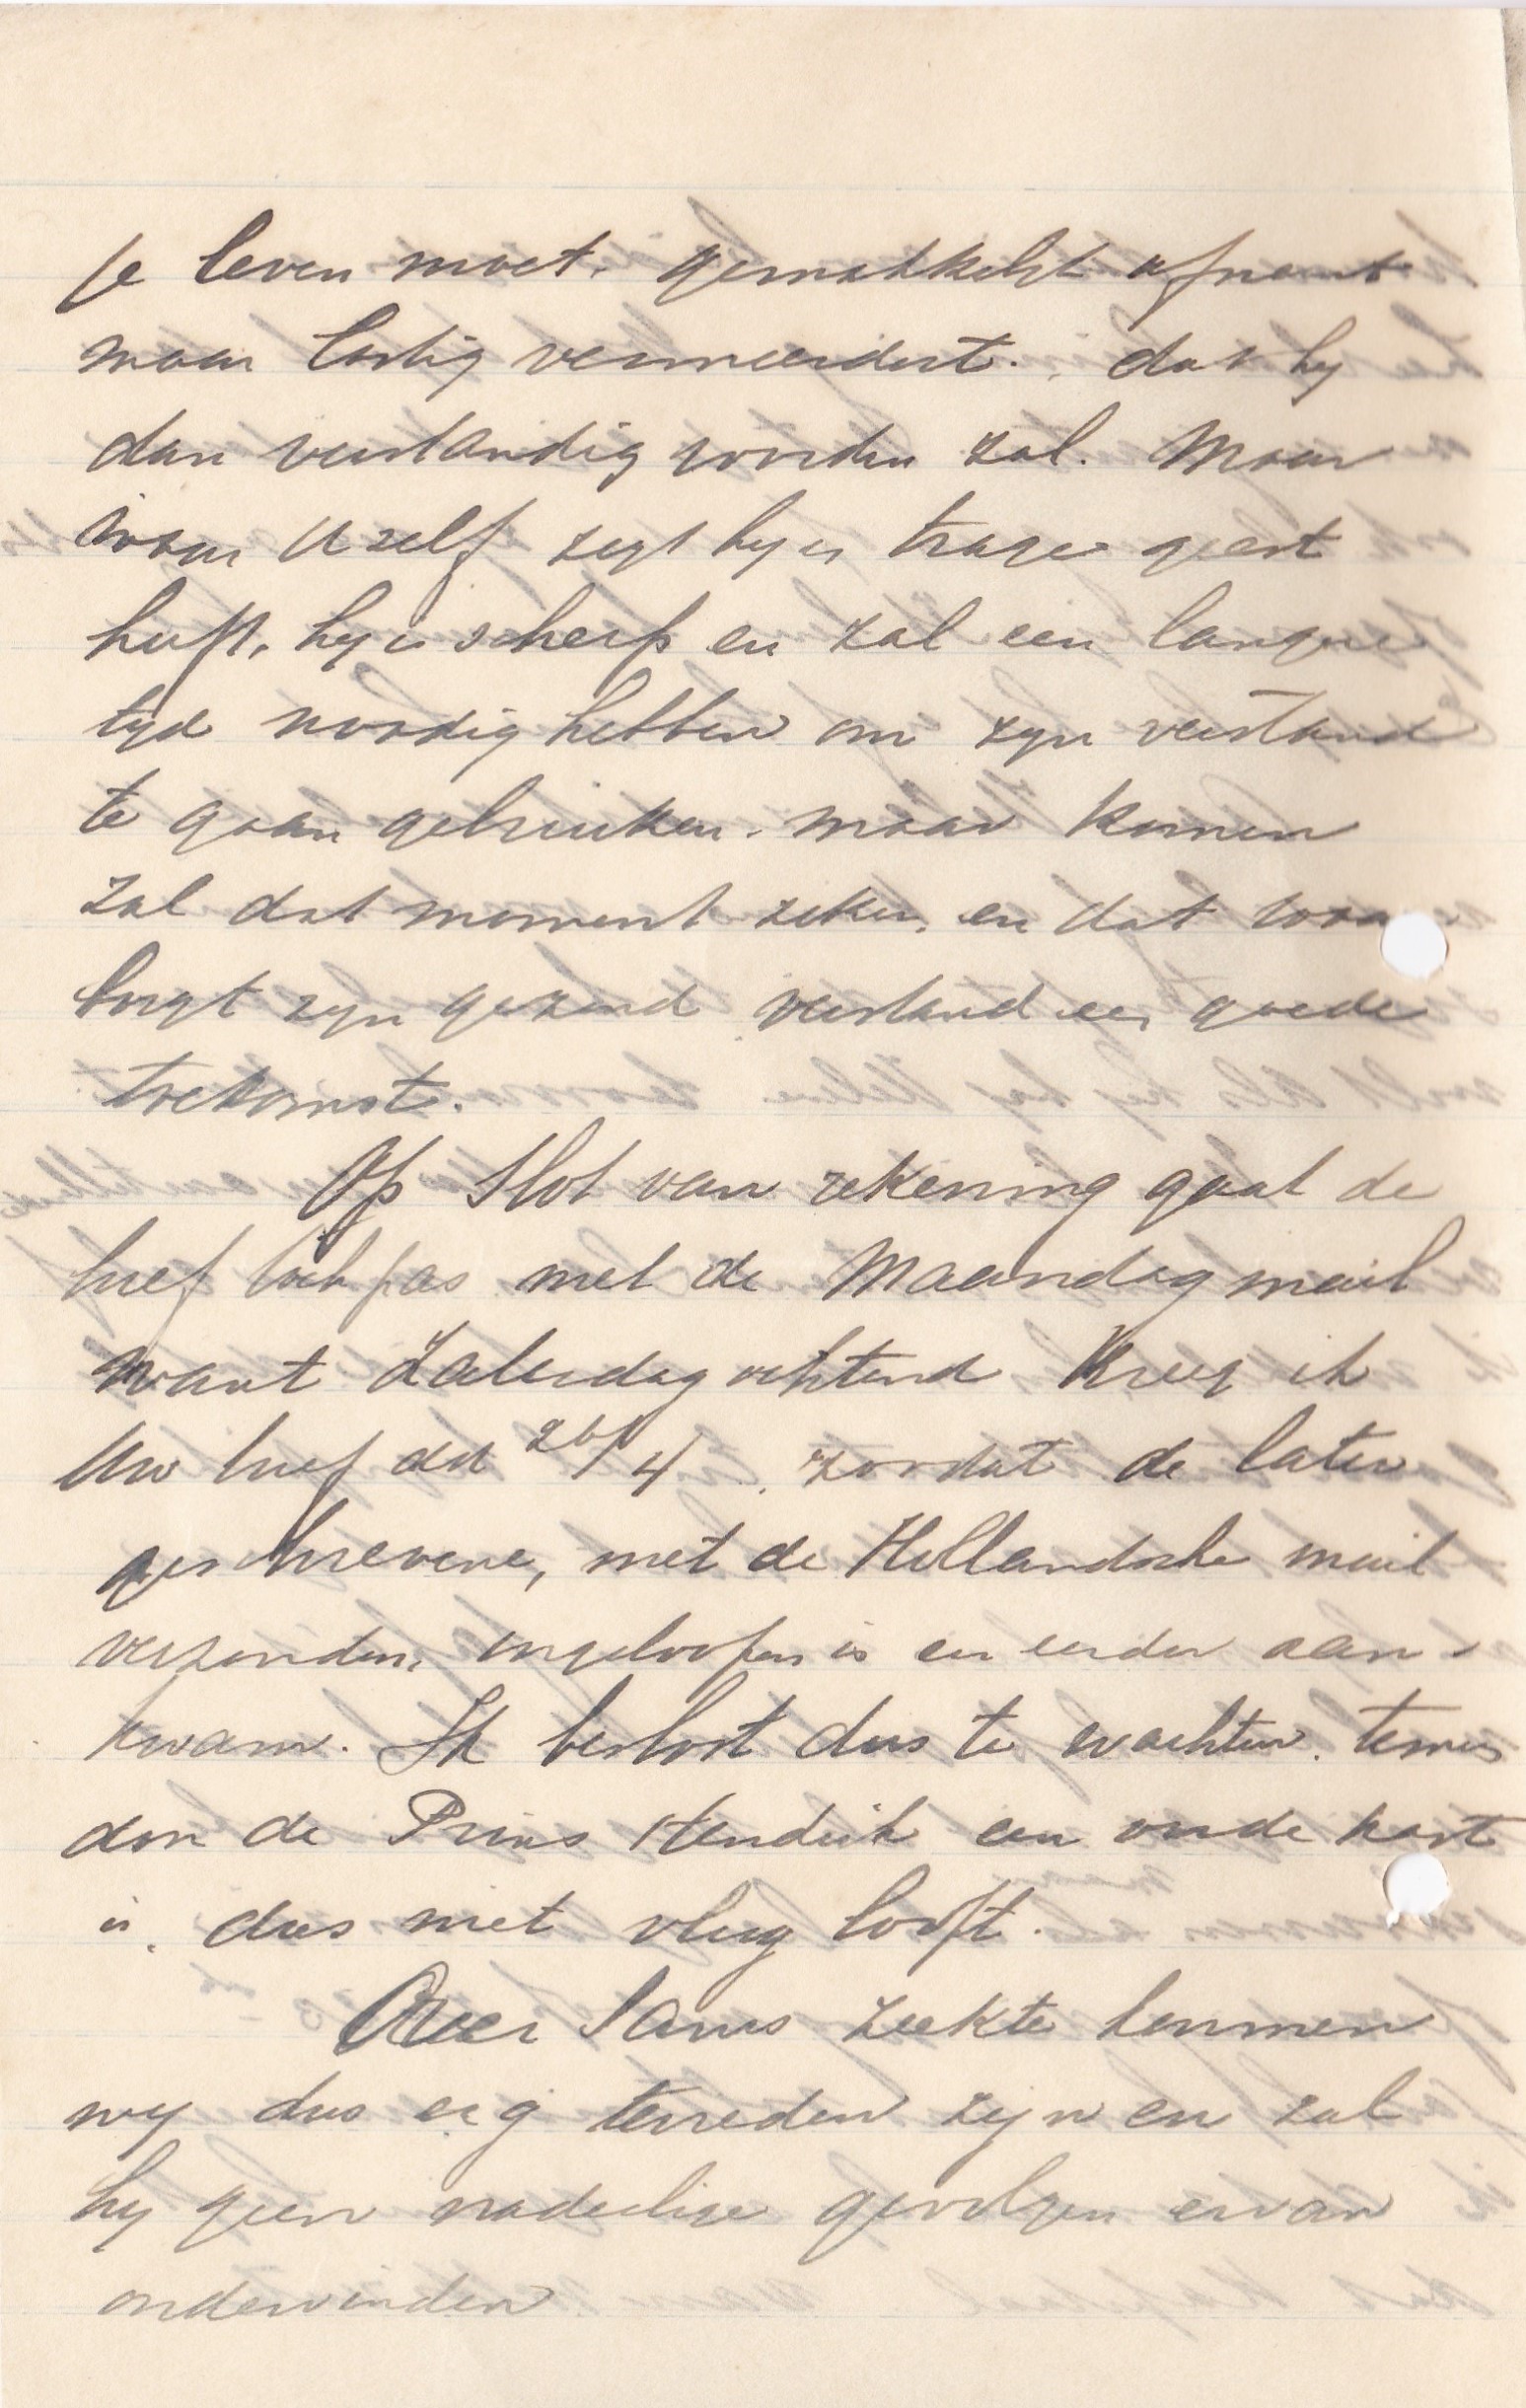 je leven moet. gemakkelijk afneemt
maar lastig vermeerdert. dat hij
dan verstandig worden zal. Maar
waar U zelf zegt hij een trage geest
heeft, hij is scherp en zal een langere
tijd noodig hebben om zijn verstand
te gaan gebruiken. maar komen
zal dat moment zeker, en dat waar
borgt zijn gezond verstand een goede
toekomst.
Op Slot van rekening gaat de
brief toch pas met de Maandag mail
want Zaterdag ochtend kreeg ik
Uw brief dd 26/4. zoodat de later
geschrevene, met de Hollandsche mail
verzonden, ingeloopen is en eerder aan-
kwam. Ik besloot dus te wachten.
door de Prins Hendrik een oude kast
is, dus niet vlug loopt.
Over Sams ziekte kunnen
wij dus erg tevreden zijn en zal
hij geen nadeelige gevolgen ervan
ondervinden